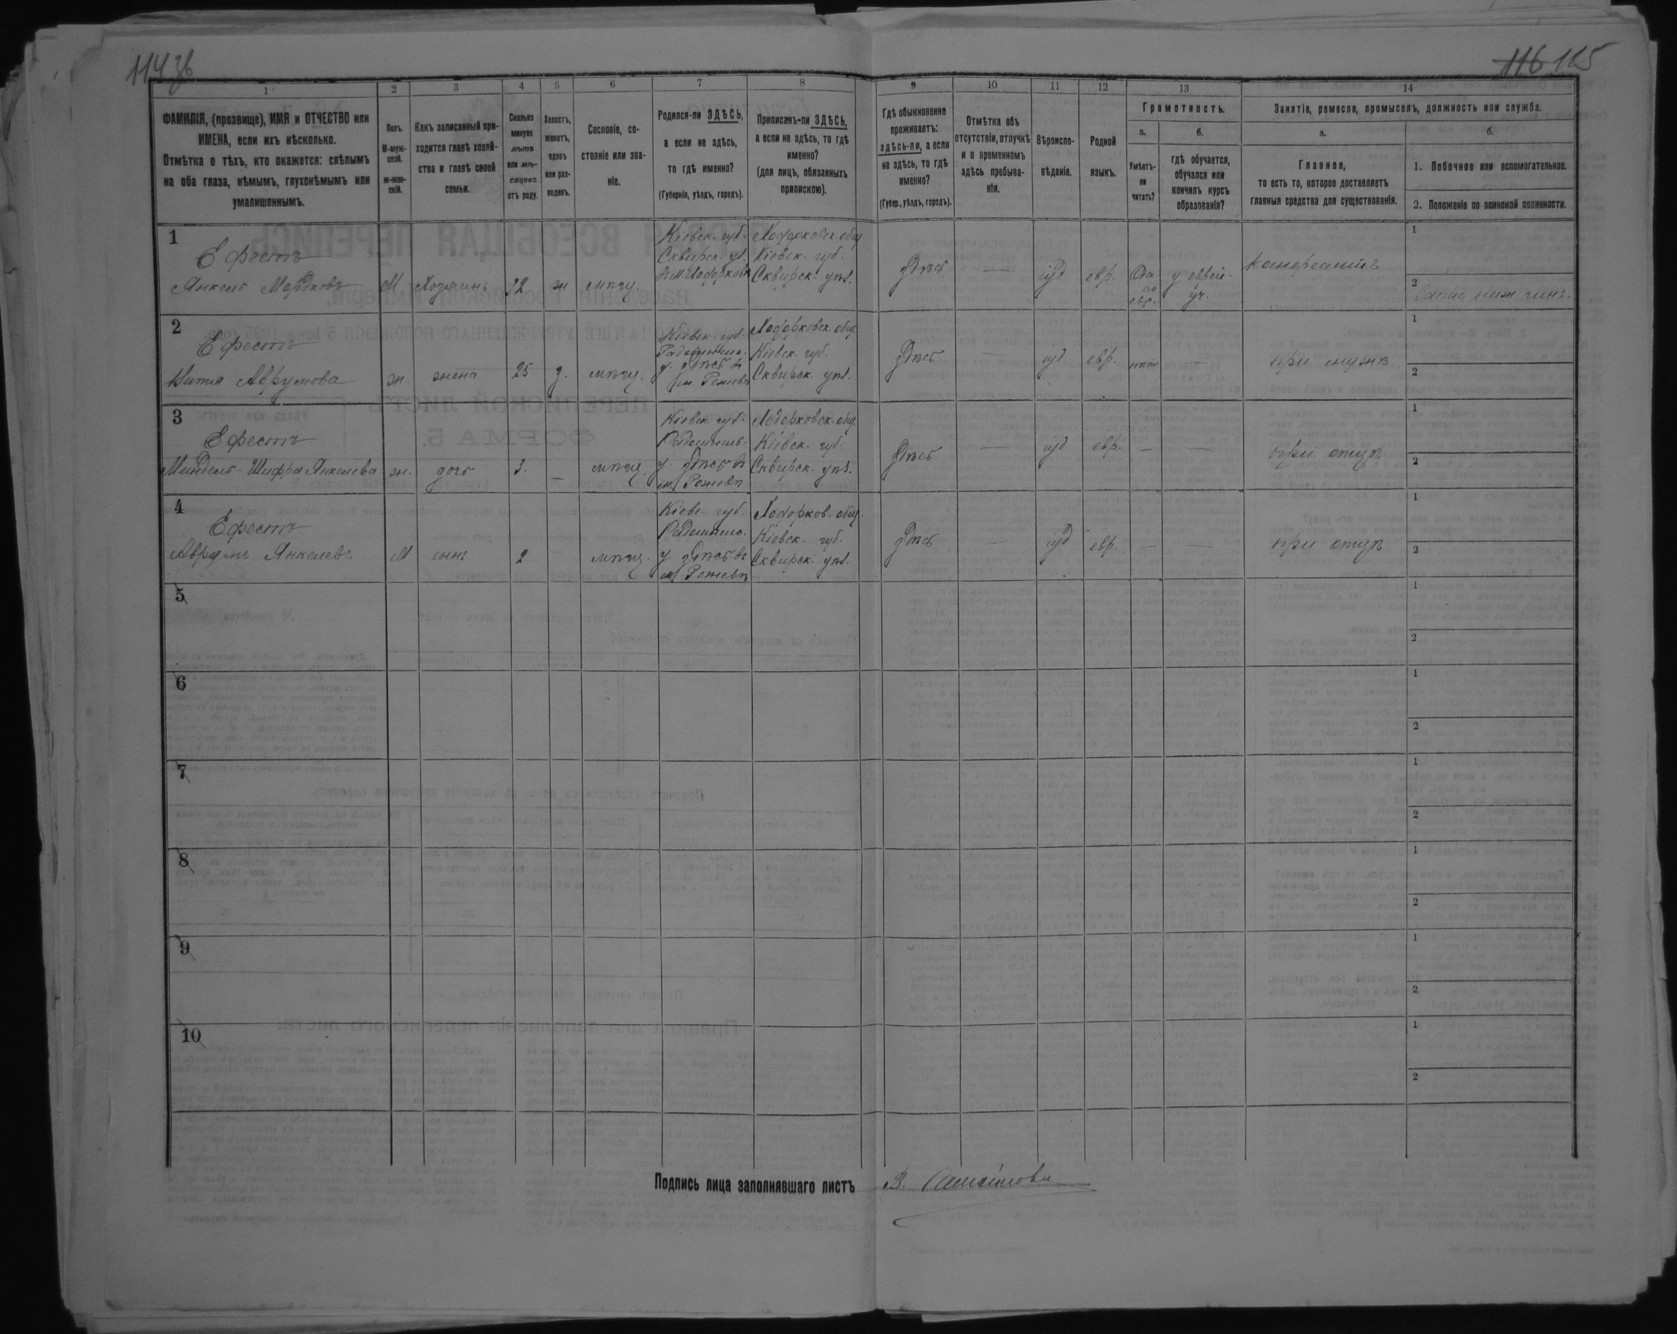 114 об
116 115
1
2
3
4
5
6
7
8
9
10
11
12
13
14
ФАМИЛІЯ, (прозвище), ИМЯ и ОТЧЕСТВО или
ИМЕНА, если ихъ нѣсколько.
Отмѣтка о тѣхъ, кто окажется: слѣпымъ
на оба глаза, нѣмымъ, глухонѣмымъ или
умалишеннымъ.
Полъ.
М-муж-
ской.
ж-жен-
скій.
Какъ записанный при-
ходится главѣ хозяй-
ства и главѣ своей
семьи.
Сколько
минуло
лѣтъ
или мѣ-
сяцевъ
отъ роду.
Холостъ,
женатъ,
вдовъ
или раз-
веденъ.
Сословіе, со-
стояніе или зва-
ніе.
Родился-ли ЗДѢСЬ,
а если не здѣсь,
то гдѣ именно?
(Губернія, уѣздъ, городъ).
Приписанъ-ли ЗДѢСЬ,
а если не здѣсь, то гдѣ
именно?
(для лицъ, обязанныхъ
припискою).
Гдѣ обыкновенно
проживаетъ:
здѣсь-ли, а если
не здѣсь, то гдѣ
именно?
(Губер., уѣздъ, городъ).
Отмѣтка объ
отсутствіи, отлучкѣ
и о временномъ
здѣсь пребыва-
ніи.
Вѣроиспо-
вѣданіе.
Родной
языкъ.
Грамотность.
а.
б.
Умѣетъ-
ли
читать?
гдѣ обучается,
обучался или
кончилъ курсъ
образованія?
Занятіе, ремесло, промыселъ, должность или служба.
а.
б.
Главное,
то есть то, которое доставляетъ
главныя средства для существованія.
1. Побочное или вспомогательное.
2. Положеніе по воинской повинности.
1
Ефестъ
Янкель Мордковъ
М
Хозяинъ
32
ж
мѣщ.
Кіевск. губ.
Сквирск. уѣ.
Ходорковск. общ
Кіевск. губ.
Сквирск. уѣз.
Здѣсь
—
іуд
евр.
у еврей.
уч.
1
2
Запас. ниж. чинъ.
2
Ефестъ
Аврумова
ж.
жена
25
з.
мѣщ.
Кіевск. губ.
Ходорковск. общ
Кіевск. губ.
Сквирск. уѣз.
Здѣсь
—
іуд
евр.
нѣтъ
—
при мужѣ
1
2
3
Ефестъ
Миндель-Шифра Янкелева
ж.
дочь
3.
—
мѣщ.
Кіевск. губ.
у. здѣсь въ
м. Рожевѣ
Ходорковск. общ
Кіевск. губ.
Сквирск. уѣз.
Здѣсь
—
іуд
евр.
—
—
при отцѣ
1
2
4
Ефестъ
Аврумъ Янкелевъ
М
сынъ
2
—
мѣщ.
Кіевс. губ.
у здѣсь въ
м. Рожевѣ
Ходорков. общ.
Кіевск. губ.
Сквирск. уѣз.
Здѣсь
—
іуд
евр.
—
—
при отцѣ
1
2
5
1
2
6
1
2
7
1
2
8
1
2
9
1
2
10
1
2
Подпись лица заполнявшаго листъ
В.